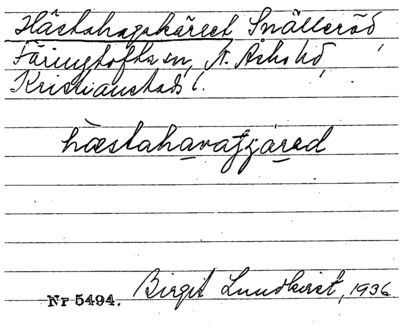 Hästahagakärret, Snälleröd,
Färingtofta sn, N. Åsbo hd,
Kristianstads l.
hæstahavatʃæ̱red
Birgit Lundkvist, 1936
Nr 5494.